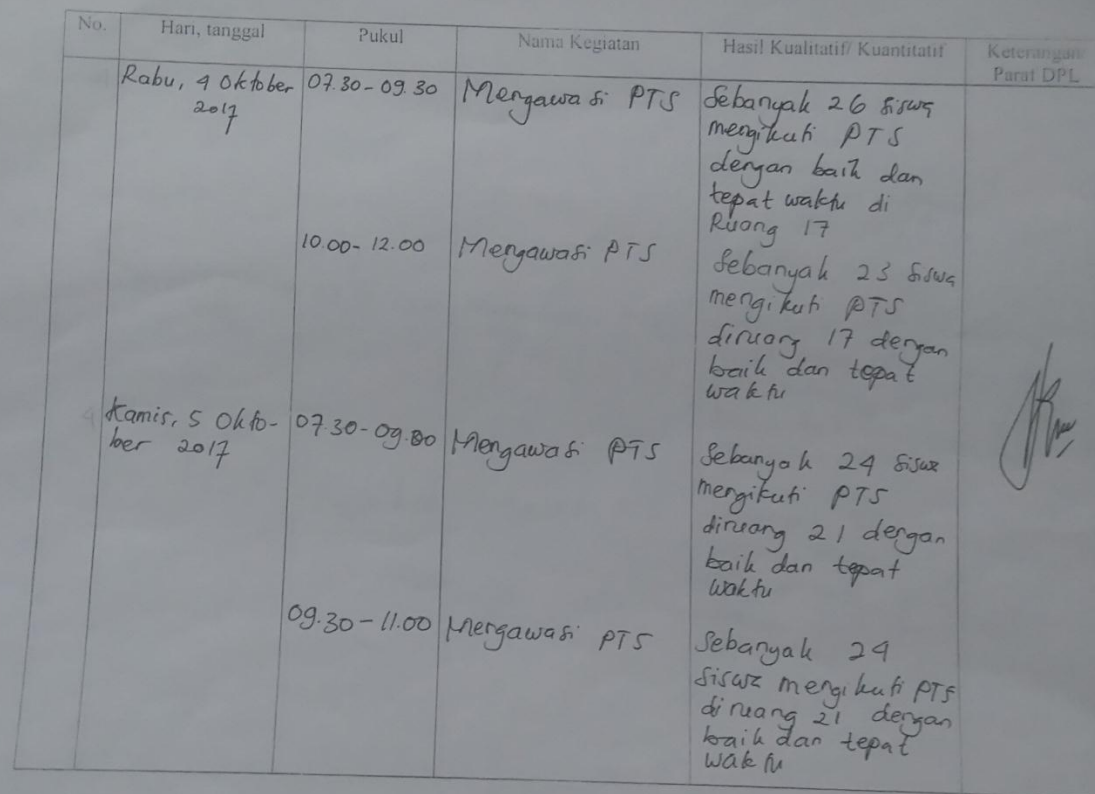 No.
Hari, tanggal
Pukul
Nama Kegiatan
Hasil Kualitatif/ Kuantitatif
Keterangan/
Paraf DPL
Rabu, 4 Oktober
2017
07.30-09.30
Mengawasi PTS
Sebanyak 26 siswa
mengikuti PTS
dengan baik dan
tepat waktu di
Ruang 17
10.00-12.00
Mengawasi PTS
Sebanyak 23 siswa
mengikuti PTS
diruang 17 dengan
baik dan tepat
waktu
Kamis, 5 Okto-
ber 2017
07.30-09.00
Mengawasi PTS
Sebanyak 24 siswa
mengikuti PTS
diruang 21 dengan
baik dan tepat
waktu
09.30-11.00
Mengawasi PTS
Sebanyak 24
siswa mengikuti PTS
diruang 21 dengan
baik dan tepat
waktu